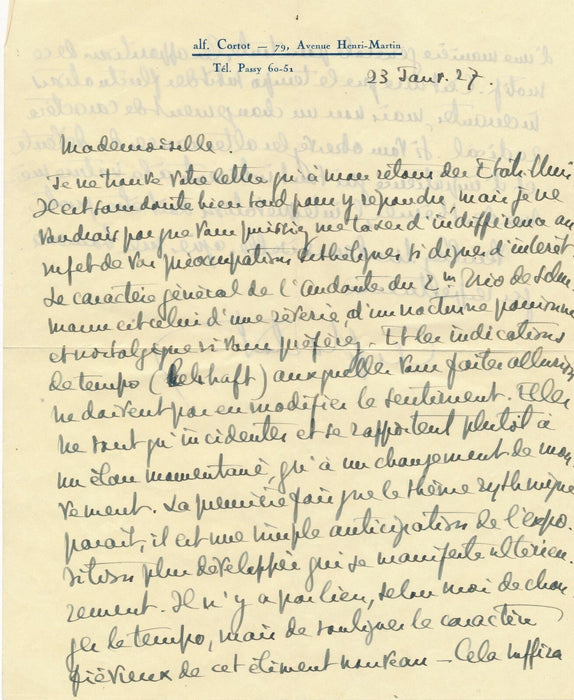 alf. Cortot — 79, Avenue Henri-Martin
Tél. Passy 60-51
23 Janv. 27.
Mademoiselle.
Je ne trouve votre lettre qu'à mon retour des Etats Unis
Il est sans doute bien tard pour y répondre, mais je ne
voudrais pas que vous puissiez me taxer d'indifférence au
sujet de vos préoccupations esthétiques si dignes d'intérêt.
Le caractère général de l'andante du 2me Trio de Schu
mann est celui d'une rêverie, d'un nocturne passionné
et nostalgique si vous préférez. Et les indications
de tempo (Lebhaft) auxquelles vous faites allusion
ne doivent pas en modifier le sentiment. Elles
ne sont qu'incidentes et se rapportent plutôt à
un élan momentané, qu'à un changement de mou
vement. La première fois que le thème rythmique
parait, il est une simple anticipation de l'expo.
sition plus développée qui se manifeste ultérieu.
rement. Il n'y a pas lieu, selon moi de chan
ger le tempo, mais de souligner le caractère
fiévreux de cet élément nouveau — Cela suffira